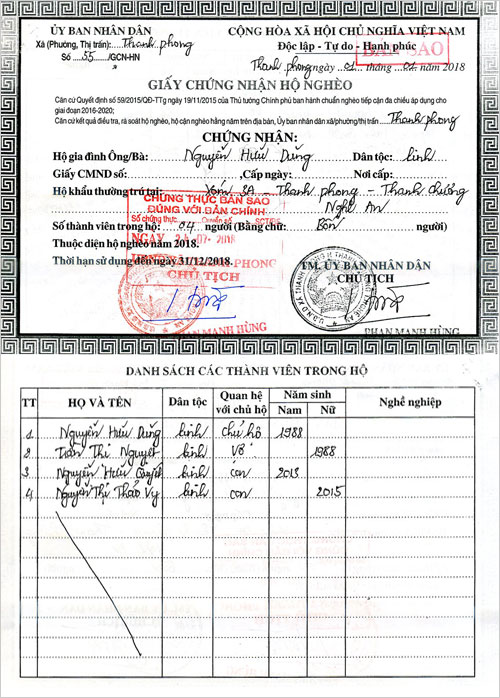 ỦY BAN NHÂN DÂN
Xã (Phường, Thị trấn): Thanh phong
Số 55 /GCN-HN
CỘNG HÒA XÃ HỘI CHỦ NGHĨA VIỆT NAM
Độc lập - Tự do - Hạnh phúc
BẢN SAO
Thanh phong ngày 01 tháng 01 năm 2018
GIẤY CHỨNG NHẬN HỘ NGHÈO
Căn cứ Quyết định số 59/2015/QĐ-TTg ngày 19/11/2015 của Thủ tướng Chính phủ ban hành chuẩn nghèo tiếp cận đa chiều áp dụng cho
giai đoạn 2016-2020;
Căn cứ kết quả điều tra, rà soát hộ nghèo, hộ cận nghèo hằng năm trên địa bàn, Ủy ban nhân dân xã/phường/thị trấn Thanh phong
CHỨNG NHẬN:
Hộ gia đình Ông/Bà: Nguyễn Hữu Dũng Dân tộc: kinh
Giấy CMND số: ,Cấp ngày: Nơi cấp:
Hộ khẩu thường trú tại: Xóm 3A - Thanh phong - Thanh chương
Nghệ An
CHỨNG THỰC BẢN SAO
ĐÚNG VỚI BẢN CHÍNH
Số chứng thực Quyển số SCT/BS
NGÀY 07 - 2018
Số thành viên trong hộ: 04 người (Bằng chữ: Bốn người)
Thuộc diện hộ nghèo năm 2018.
Thời hạn sử dụng đến ngày 31/12/2018.
PHONG
CHỦ TỊCH
TM. ỦY BAN NHÂN DÂN
CHỦ TỊCH
PHAN MẠNH HÙNG
PHAN MẠNH HÙNG
DANH SÁCH CÁC THÀNH VIÊN TRONG HỘ
TT HỌ VÀ TÊN Dân tộc Quan hệ với chủ hộ Năm sinh Nam Nữ Nghề nghiệp
1 Nguyễn Hữu Dũng kinh chủ hộ 1988
2 Trần Thị Nguyệt kinh Vợ 1988
3 Nguyễn Hữu Quyết kinh con 2013
4 Nguyễn Thị Thảo Vy kinh con 2015